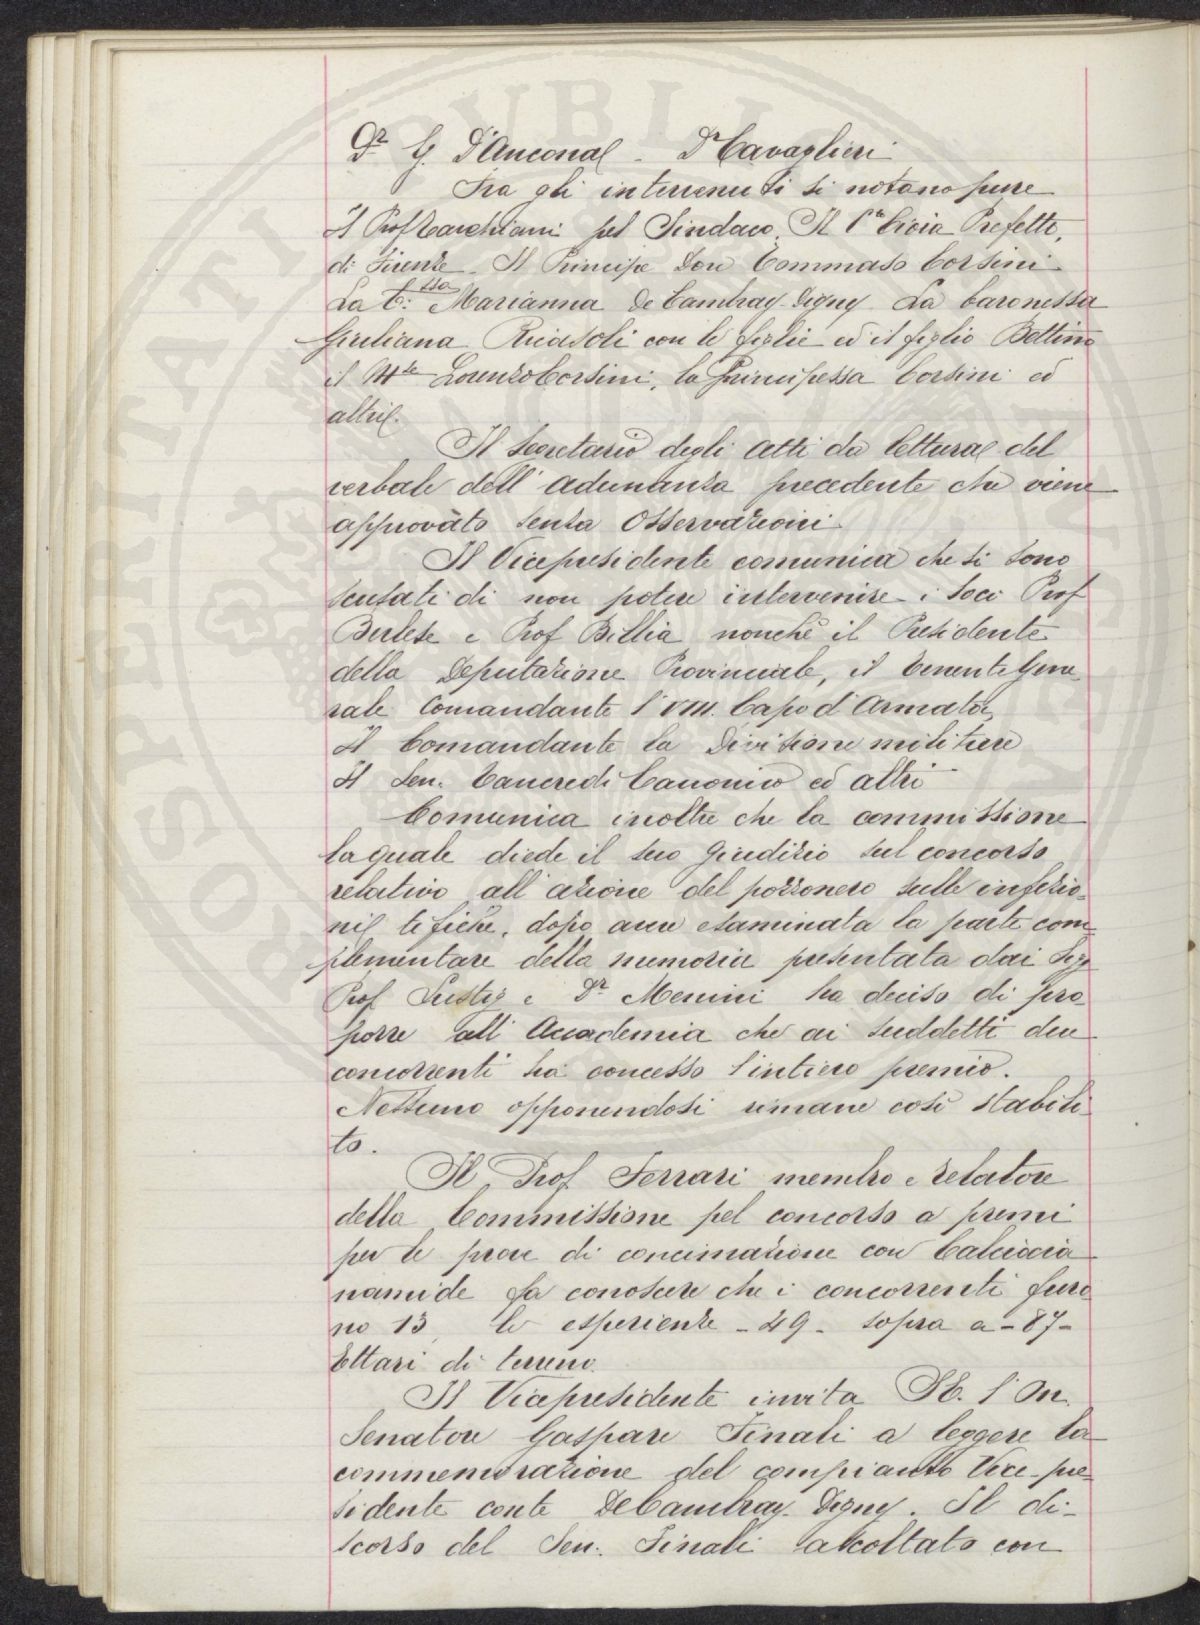 Dr G. D'Ancona - Dr Cavaglieri
Fra gli intervenuti si notano pure
Il Prof Carchiani pel Sindaco, Il Cte Cioia Prefetto,
di Firenze. Il Principe Don Tommaso Corsini
La C.ssa Marianna De Cambray-Digny La baronessa
Giuliana Ricasoli con le figlie ed il figlio Bettino
il Mse Lorenzo Corsini, la Principessa Corsini ed
altri.
Il Secretario degli Atti da lettura del
verbale dell'adunanza precedente che viene
approvato senza Osservazioni
Il Vicepresidente comunica che si sono
scusati di non potere intervenire i Soci Prof
Berlese e Prof Billia nonchè il Presidente
della Deputazione Provinciale, il Tenente Gene
rale Comandante l'VIII. Capo d'Armata,
Il Comandante la Divisione militare
Il Sen. Tancredi Canonico ed altri
Comunica inoltre che la commissione
la quale diede il suo Giudizio sul concorso
relativo all'azione del pozzonero sulle infezio-
ni tifiche, dopo avere esaminata la parte com-
plementare della memoria presentata dai Sigg
Prof Lustig e Dr Menini ha deciso di pro
porre all'Accademia che ai suddetti due
concorrenti sia concesso l'intiero premio.
Nessuno opponendosi rimane così stabili
to.
Il Prof Ferrari membro e relatore
della Commissione pel concorso a premi
per le prove di concimazione con Calciocia
namide fa conoscere che i concorrenti furo
no 13, le esperienze - 49 - sopra a - 87 -
Ettari di terreno.
Il Vicepresidente invita S.E. l'On.
Senatore Gaspare Finali a leggere la
commemorazione del compianto Vice-pre-
sidente conte De Cambray-Digny. Il di-
scorso del Sen. Finali ascoltato con